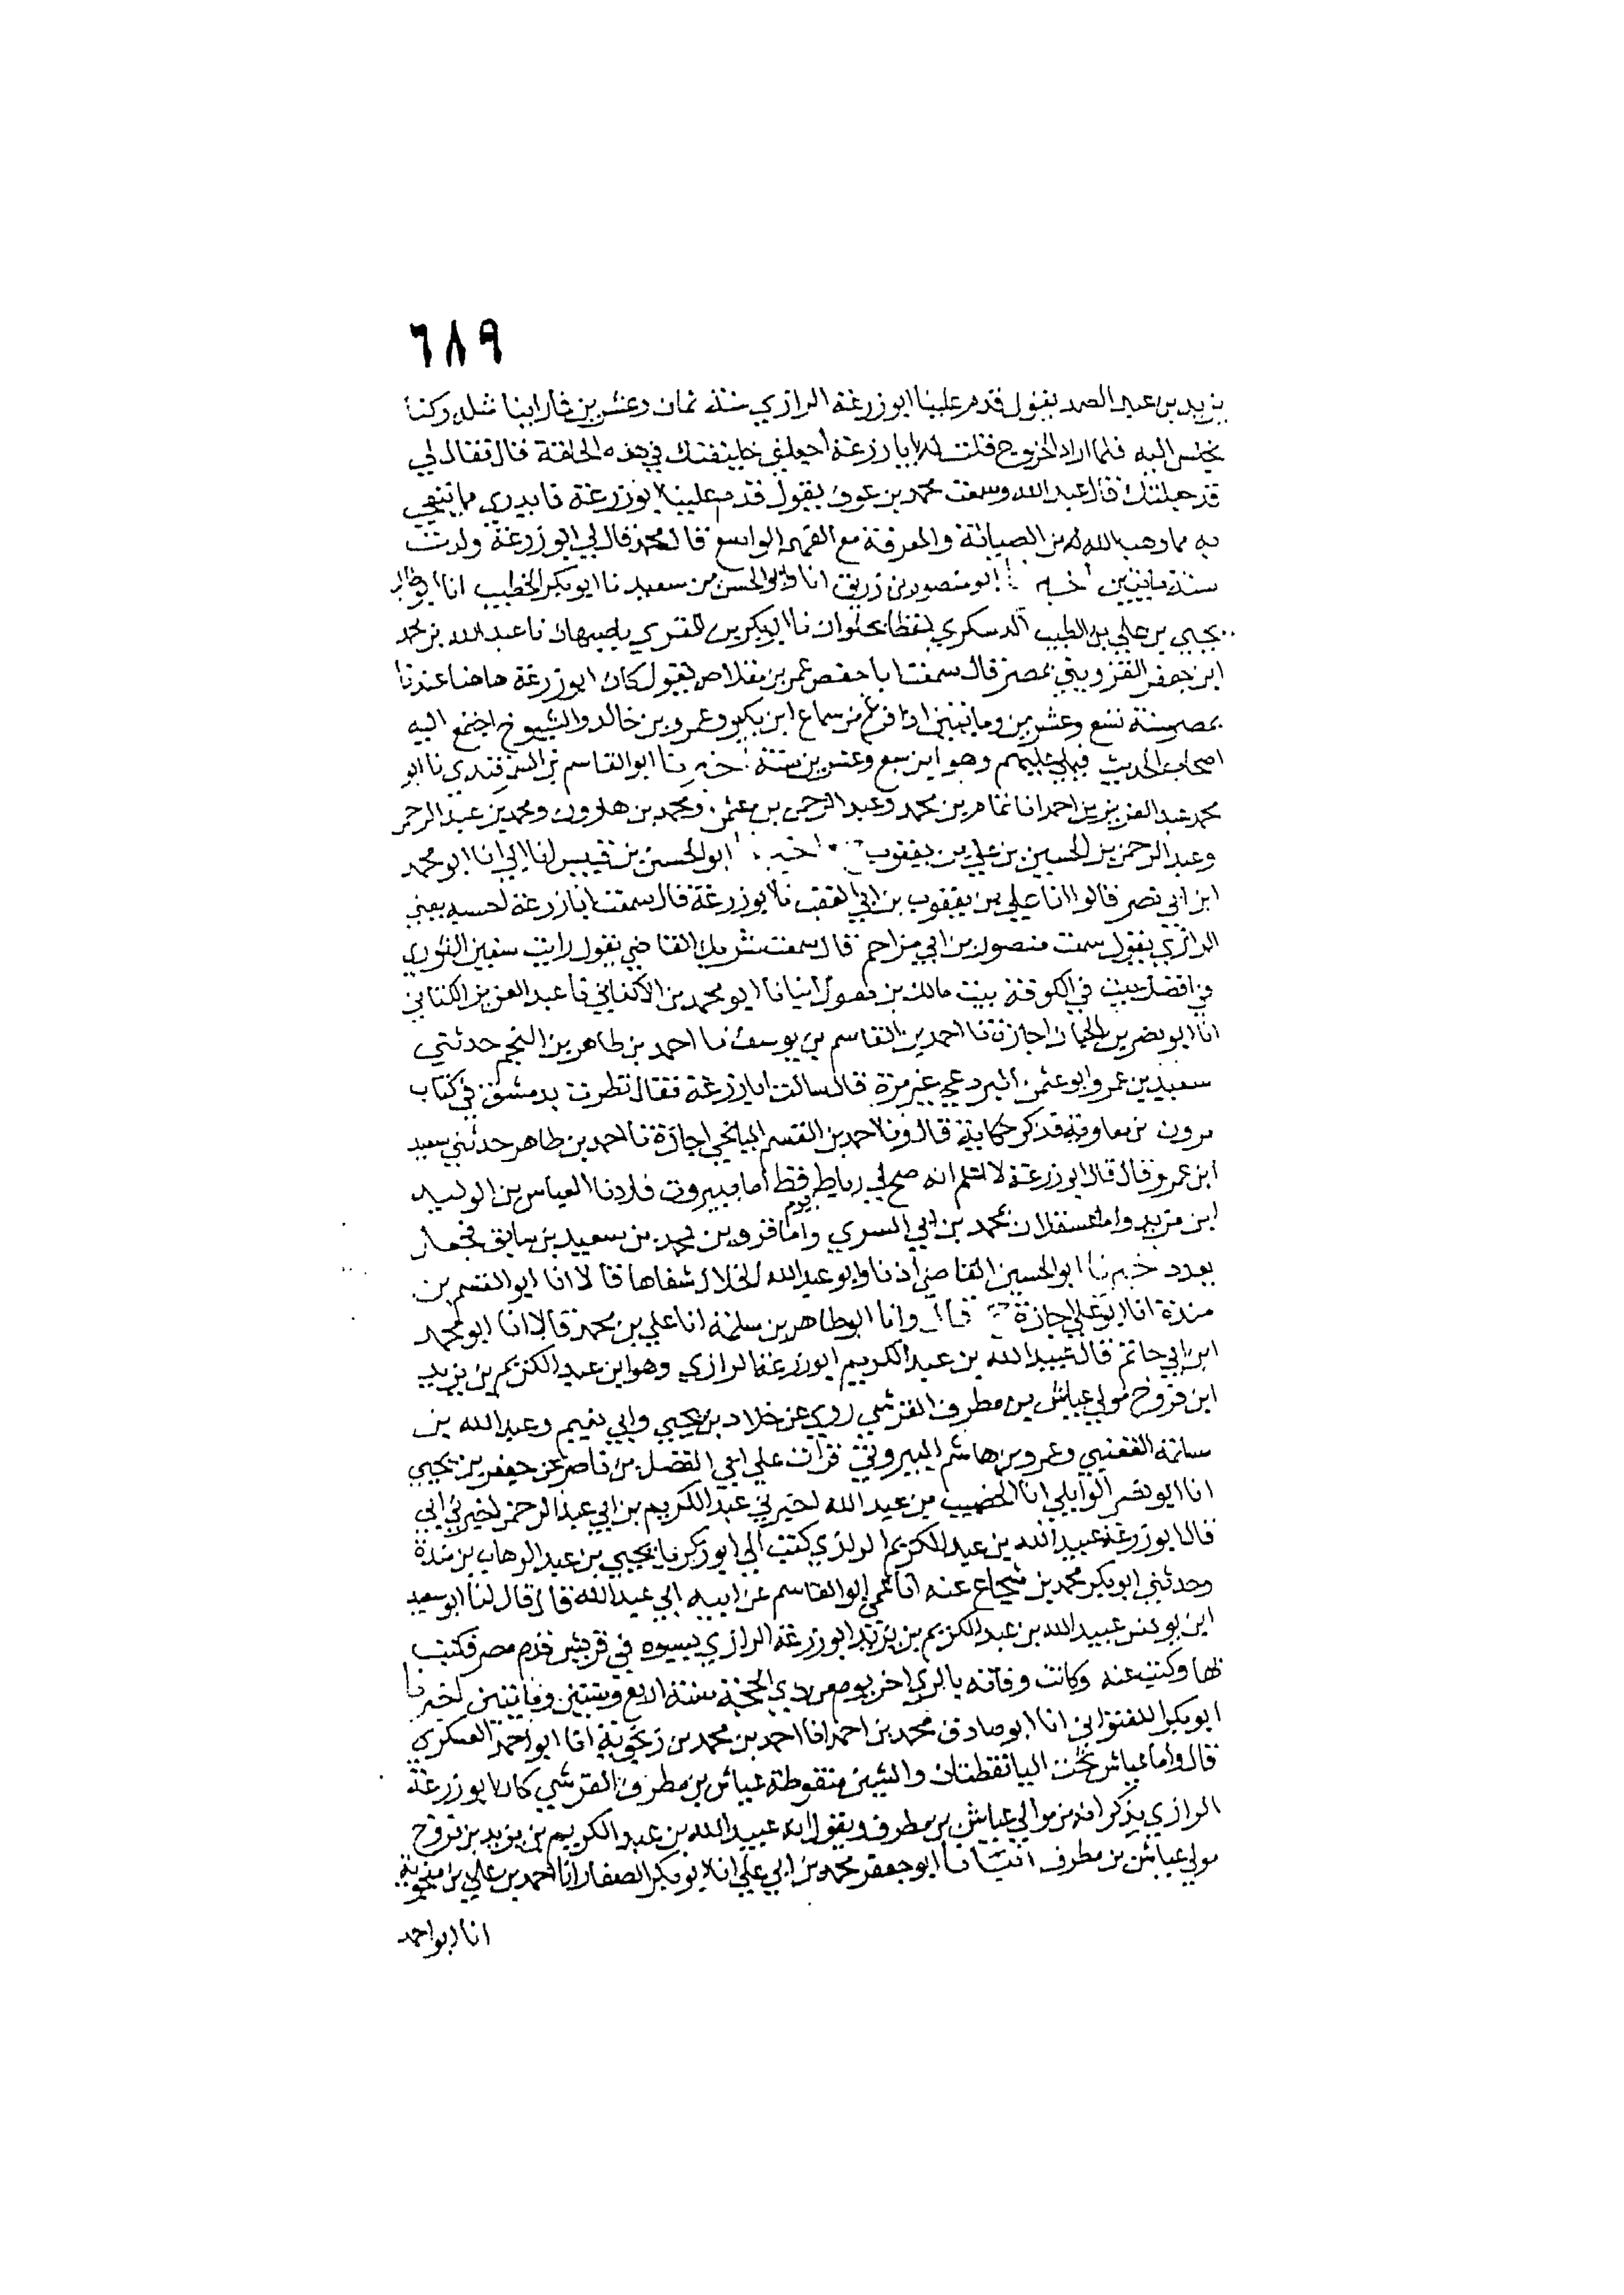 ٦٨٩
يزيد بن عبد الصمد يقول قدم علينا ابو زرعة الرازي سنة ثمان وعشرين فما راينا مثله وكنا
نجلس اليه فلما اراد الخروج قلت له يا ابا زرعة اجعلني خليفتك في هذه الحلقة قال فقال لي
قد جعلتك قال عبد الله وسمعت محمد بن عوف يقول قدم علينا ابو زرعة فما يدري مما يتعجب
به مما وهب الله له من الصيانة والمعرفة مع الفهم الواسع قال محمد قال لي ابو زرعة ولدت
سنة مايتين ابو منصور بن زريق انا وابو الحسن بن سعيد نا ابو بكر الخطيب انا ابو طالب
يحيي بن علي بن الطيب الدسكري لفظا بحلوان نا ابو بكر بن المقري باصبهان نا عبد الله بن محمد
ابن جعفر القزويني بمصر قال سمعت ابا حفص عمر بن مقلاص يقول كان ابو زرعة هاهنا عندنا
بمصر سنة تسع وعشرين ومايتين اذا فرغ من سماع ابن بكير وعمرو بن خالد والشيوخ اجتمع اليه
اصحاب الحديث فيملي عليهم وهو ابن سبع وعشرين سنة اخبرنا ابو القاسم بن السمرقندي نا ابو
محمد عبد العزيز بن احمد انا تمام بن محمد وعبد الرحمن بن عثمن ومحمد بن هارون ومحمد بن عبد الرحمن
وعبد الرحمن بن الحسين بن علي بن يعقوب ابو الحسن بن قبيس انا ابي انا ابو محمد
ابن ابي نصر قالوا انا علي بن يعقوب بن ابي العقب نا ابو زرعة قال سمعت ابا زرعة لحسبه يعني
الرازي يقول سمعت منصور بن ابي مزاحم قال سمعت شريك القاضي يقول رايت سفين الثوري
في افضل بيت في الكوفة بيت مالك بن مغول انبانا ابو محمد بن الاكفاني نا عبد العزيز الكتاني
انا ابو نصر بن الجبان اجازة نا احمد بن القاسم بن يوسف نا احمد بن طاهر بن النجم حدثني
سعيد بن عمرو ابو عثمن البردعي غير مرة قال سالت ابا زرعة فقال نظرت بدمشق في كتاب
مرون بن معاوية فذكر حكاية قال ونا احمد بن القسم الميانجي اجازة نا احمد بن طاهر حدثني سعيد
ابن عمرو قال قال ابو زرعة لا اعلم انه صح لي رباط يوم قط اما ببيروت فاردنا العباس بن الوليد
ابن مزيد واما عسقلان محمد بن ابي السري واما قزوين محمد بن سعيد بن سابق فجعل
يعدد اخبرنا ابو الحسين القاضي اذنا وابو عبد الله الخلال شفاها قالا انا ابو القسم بن
مندة انا ابو علي اجازة قال وانا ابو طاهر بن سلمة انا علي بن محمد قالا انا ابو محمد
ابن ابي حاتم قال عبيد الله بن عبد الكريم ابو زرعة الرازي وهو ابن عبد الكريم بن يزيد
ابن فروخ مولي عياش بن مطرف القرشي روي عن خلاد بن يحيي وابي نعيم وعبد الله بن
مسلمة القعنبي وعمرو بن هاشم البيروتي قرات علي ابي الفضل بن ناصر عن جعفر بن يحيي
انا ابو نصر الوايلي انا الخصيب بن عبد الله اخبرني عبد الكريم بن ابي عبد الرحمن اخبرني ابي
قال ابو زرعة عبيد الله بن عبد الكريم الرازي كتب الي ابو زكريا يحيي بن عبد الوهاب بن مندة
وحدثني ابو بكر محمد بن شجاع عنه انا عمي ابو القاسم عن ابيه ابي عبد الله قال قال لنا ابو سعيد
ابن يونس عبيد الله بن عبد الكريم بن يزيد ابو زرعة الرازي ينسبوه في قريش قدم مصر فكتب
بها وكتب عنه وكانت وفاته بالري اخر يوم من ذي الحجة سنة اربع وستين ومايتين اخبرنا
ابو بكر اللفتواني انا ابو صادق محمد بن احمد انا احمد بن محمد بن زنجوية انا ابو احمد العسكري
قال واما عياش تحت اليا نقطتان والشين منقوطة عياش بن مطرف القرشي كان ابو زرعة
الرازي يذكر انه من موالي عياش بن مطرف ويقول انه عبيد الله بن عبد الكريم بن يزيد بن فروخ
مولي عياش بن مطرف انبانا ابو جعفر محمد بن ابي علي انا ابو بكر الصفار انا احمد بن علي بن منجوية
انا ابو احمد